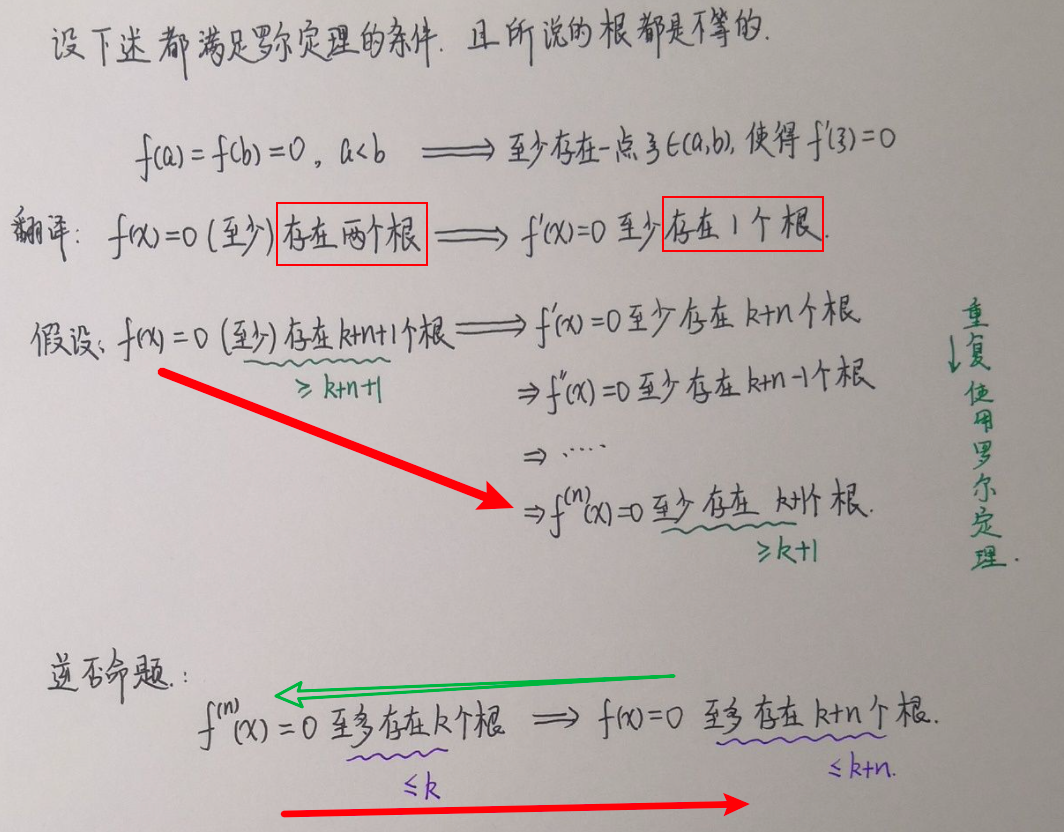 设下述都满足罗尔定理的条件. 且所说的根都是不等的.
f(a)=f(b)=0, a<b ⟹ 至少存在一点ξ∈(a,b), 使得f'(ξ)=0
翻译: f(x)=0 (至少) 存在两个根 ⟹ f'(x)=0 至少存在1个根.
假设: f(x)=0 (至少) 存在k+n+1个根 ⟹ f'(x)=0至少存在k+n个根
≥k+n+1
⇒f''(x)=0至少存在k+n-1个根
⇒ ·····
⇒f⁽ⁿ⁾(x)=0至少存在 k+1个根.
≥k+1
重复使用罗尔定理.
逆否命题.:
f⁽ⁿ⁾(x)=0 至多存在k个根 ⟹ f(x)=0 至多存在k+n个根.
≤k
≤k+n.